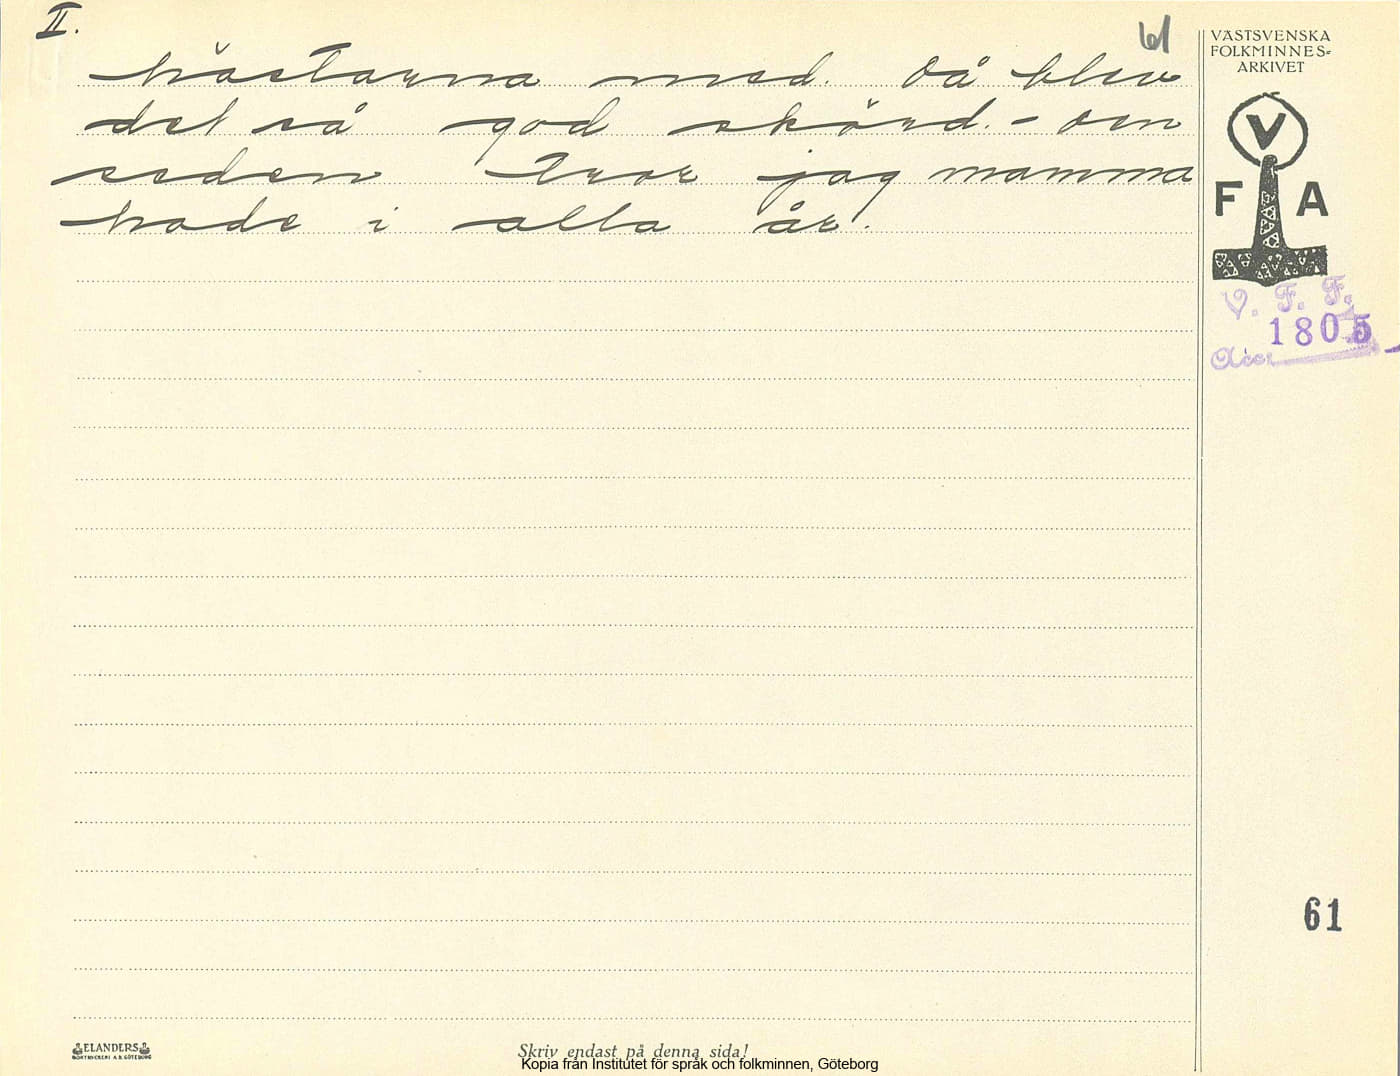 II.
61
hästarna med. Då blev
det så god skörd. – Den
seden tror jag mamma
hade i alla år.
VÄSTSVENSKA
FOLKMINNES-
ARKIVET
V
F A
V. F. F.
1805
Acc.
61
ELANDERS
BOKTRYCKERI A.B. GÖTEBORG
Skriv endast på denna sida!
Kopia från Institutet för språk och folkminnen, Göteborg